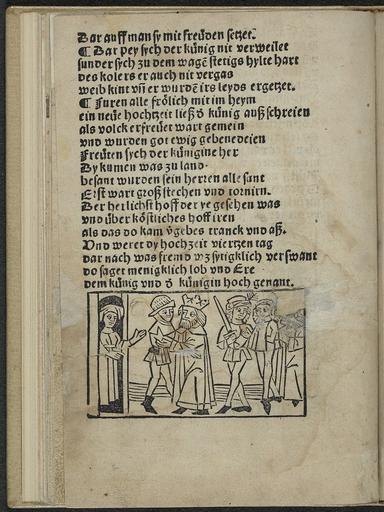 Dar auff man sy mit freüden setzet.
¶ Dar pey sych der künig nit verweilet
sunder sych zu dem wagē stetigs hylte hart
des kolers er auch nit vergas
weib kint vn̄ er wurdē irs leyds ergetzet.
¶ Furen alle frölich mit im heym
ein neüe hochtzeit ließ d̄ künig auß schreien
als volck erfreüet wart gemein
vnd wurden got ewig gebenedeien
Freüten sych der künigine her
Dy kumen was zu land·
besant wurden sein herren alle sant
Erst wart groß stechen vnd tornirn.
Der herlichst hoff der ye gesehen was
vnd über köstliches hoffiren
als das do kam v̄gebes tranck vnd aß.
Vnd weret dy hochzeit viertzen tag
dar nach was fremd wz sytiglich verswant
do saget menigklich lob vnd Ere
dem künig vnd d̄ künigin hoch genant.